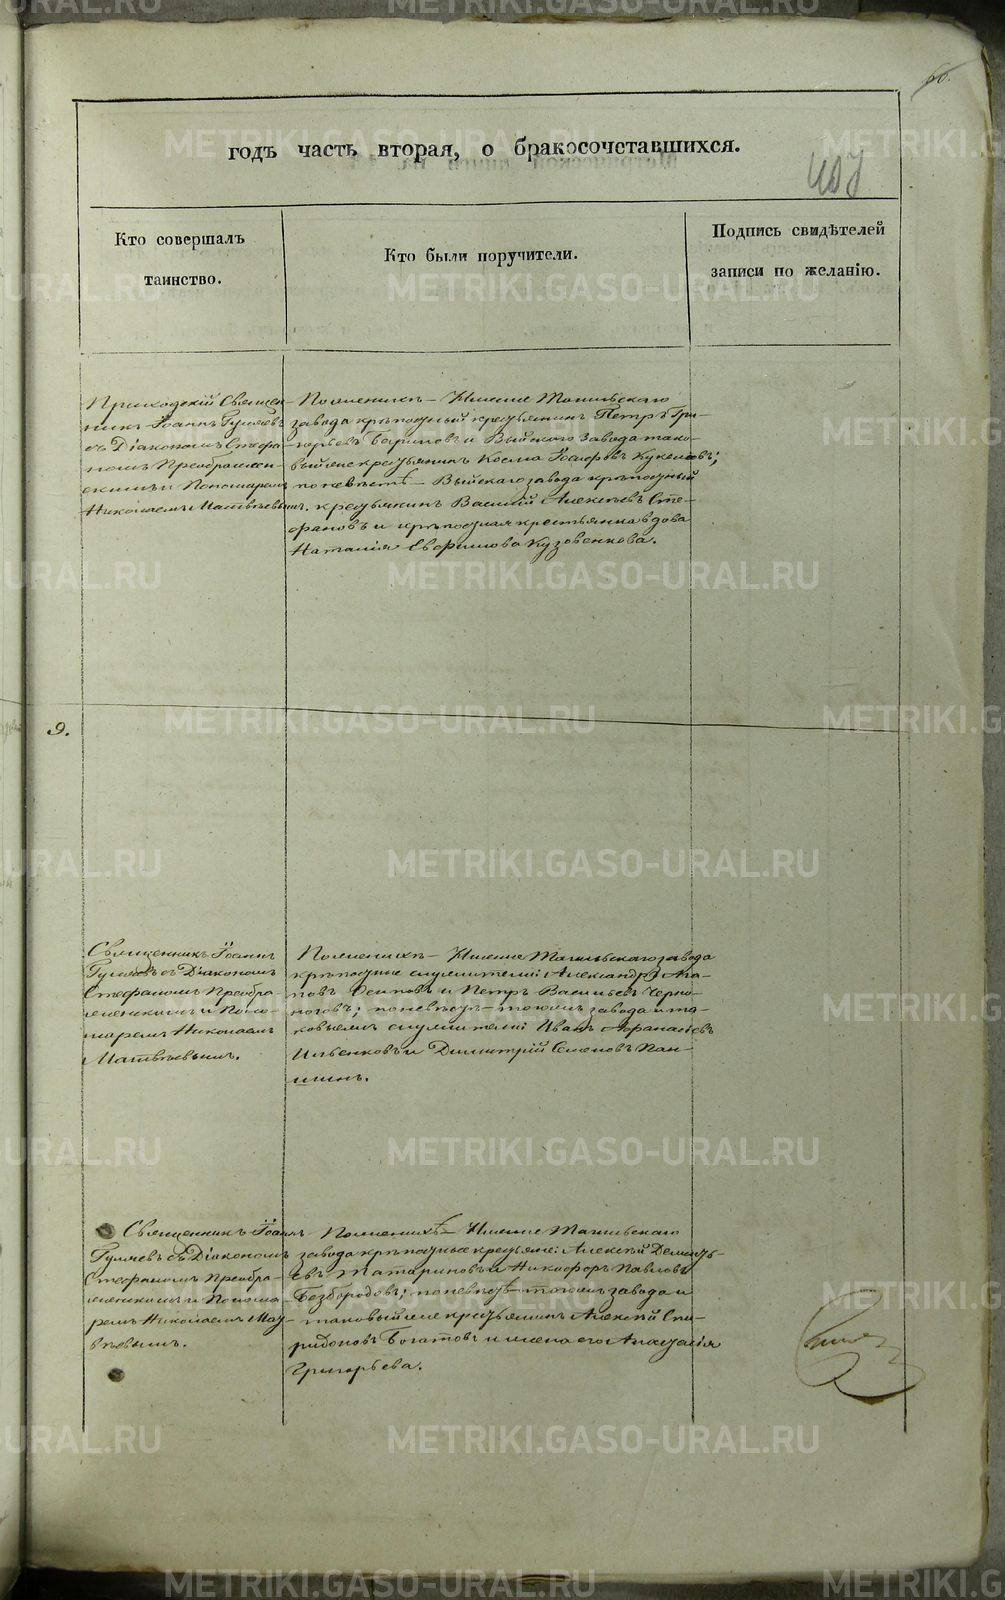 60.
годъ часть вторая, о бракосочетавшихся.
407
Кто совершалъ
таинство.
Кто были поручители.
Подпись свидѣтелей
записи по желанію.
Приходскій Священ-
никъ Іоаннъ Гуляевъ
съ Діакономъ Стефа-
номъ Преображен-
скимъ и Пономаремъ
Николаемъ Матвѣевымъ.
По женихѣ – Нижне Тагильскаго
завода крѣпостный крестьянинъ Петръ Гри-
горьевъ и Выйскаго завода тако-
вый же крестьянинъ Косма Іосифовъ
по невѣстѣ – Выйскаго завода крѣпостный
крестьянинъ Василій Алексѣевъ Сте-
фановъ и крѣпостная крестьянка вдова
Наталія Евфимова Кузовенкова.
9.
Священникъ Іоаннъ
Гуляевъ съ Діакономъ
Стефаномъ Преобра-
женскимъ и Поно-
маремъ Николаемъ
Матвѣевымъ.
По женихѣ – Нижне Тагильскаго завода
крѣпостные служители: Александръ Ага-
повъ Осиповъ и Петръ Васильевъ Черно-
ноговъ; по невѣстѣ – тогожъ завода и та-
ковыежъ служители: Иванъ Афанасіевъ
и Димитрій Семеновъ Пан-
шинъ.
Священникъ Іоаннъ
Гуляевъ съ Діакономъ
Стефаномъ Преобра-
женскимъ и Понома-
ремъ Николаемъ Мат-
вѣевымъ.
По женихѣ – Нижне Тагильскаго
завода крѣпостные крестьяне: Алексѣй Демен-
евъ Татариновъ и Никифоръ Павловъ
Безбородовъ; по невѣстѣ – тогожъ завода и
таковый же крестьянинъ Алексѣй Спи-
ридоновъ Богатовъ и жена его Анастасія
Григорьева.
METRIKI.GASO-URAL.RU